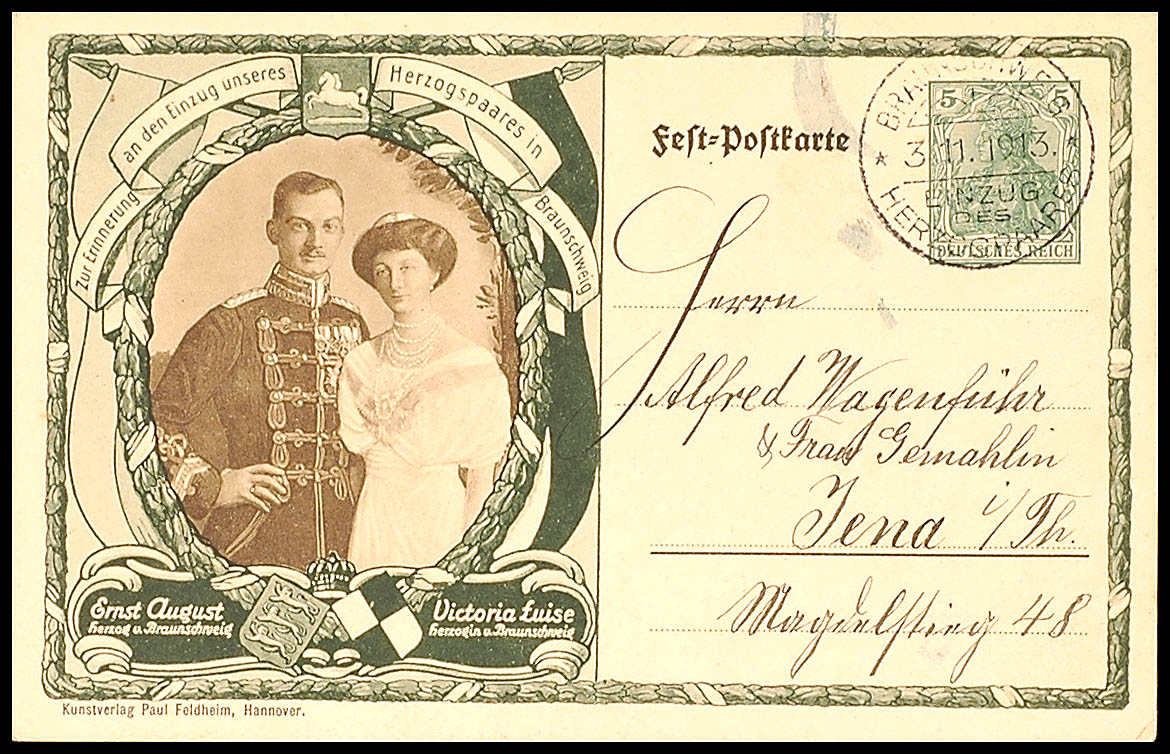 Zur Erinnerung an den Einzug unseres Herzogspaares in Braunschweig
Ernst August
Herzog v. Braunschweig
Victoria Luise
Herzogin v. Braunschweig
Kunstverlag Paul Feldheim, Hannover.
Fest-Postkarte
5 5
DEUTSCHES REICH
BRAUNSCHWEIG
3.11.1913.
EINZUG
DES
HERZOGSPAARES
Herrn
Alfred Wagenführ
& Frau Gemahlin
Jena i/Th.
Magdelstieg 48